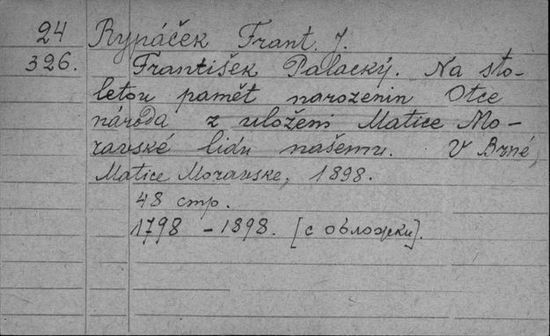 24 Rypáček Frant. J.
326. František Palacký. Na sto-
letou pamět narozenin Otce
národa z uložení Matice Mo-
ravské lidu našemu. V Brně,
Matice Moravske, 1898.
48 стр.
1798 - 1898. [с обложки].